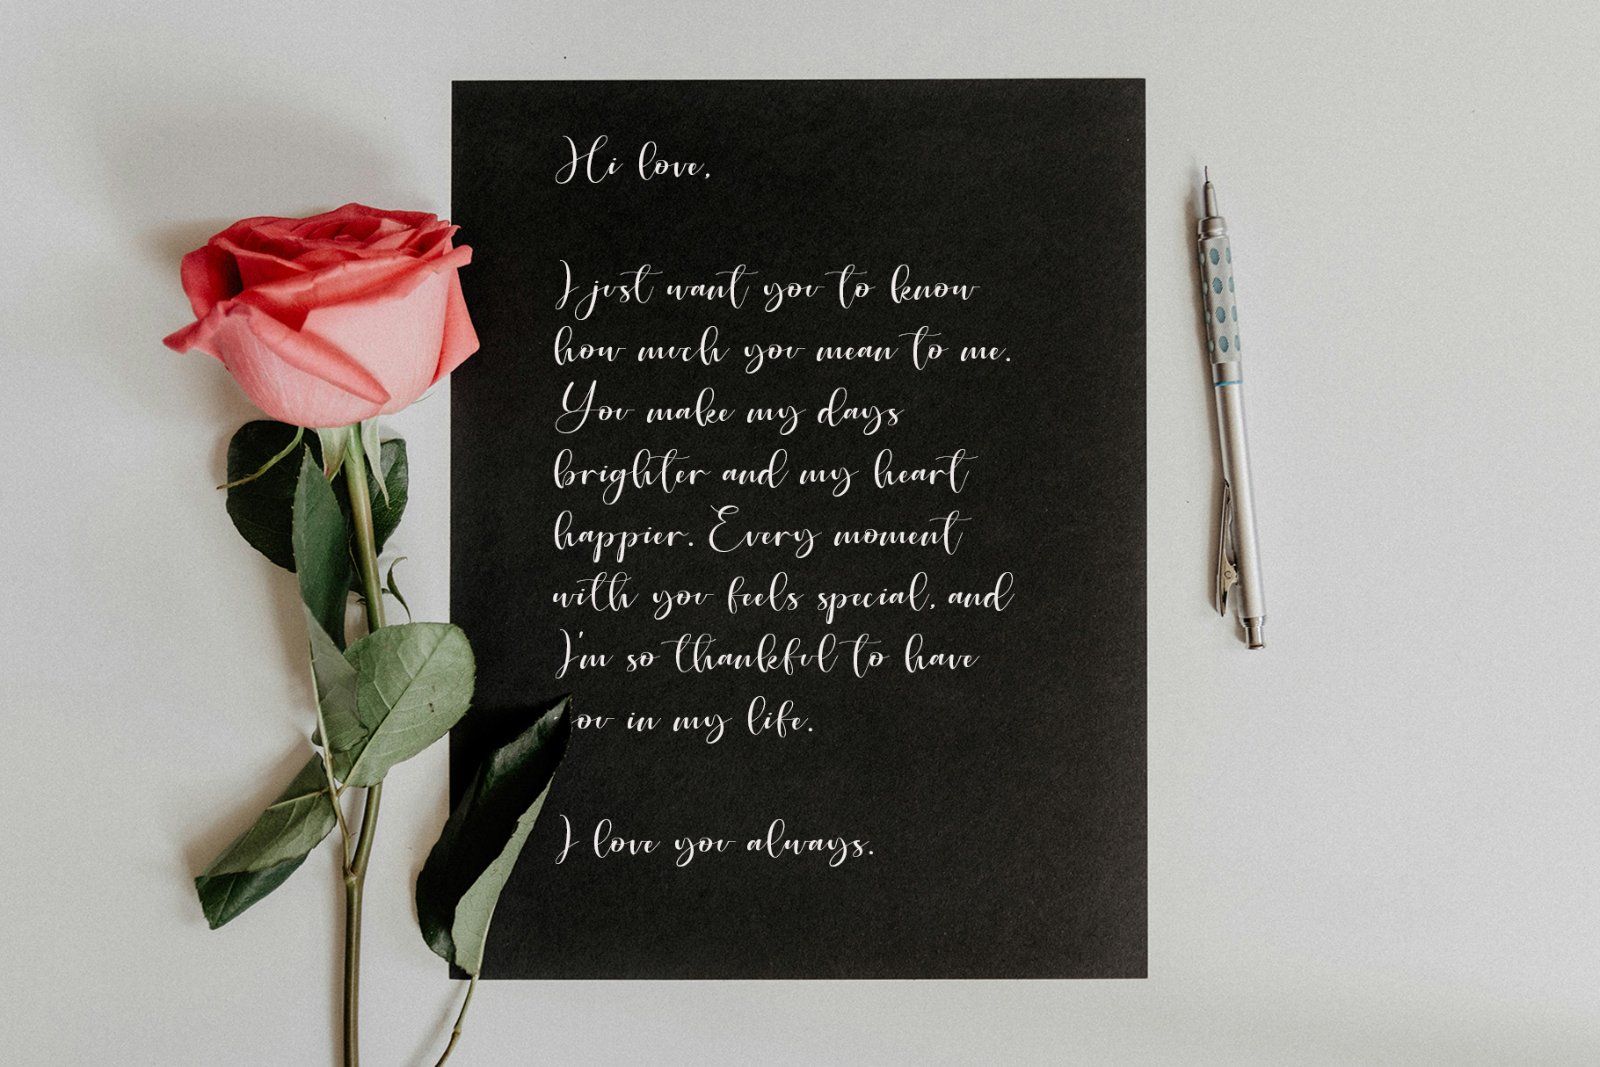 Hi love,
I just want you to know
how much you mean to me.
You make my days
brighter and my heart
happier. Every moment
with you feels special, and
I'm so thankful to have
you in my life.
I love you always.